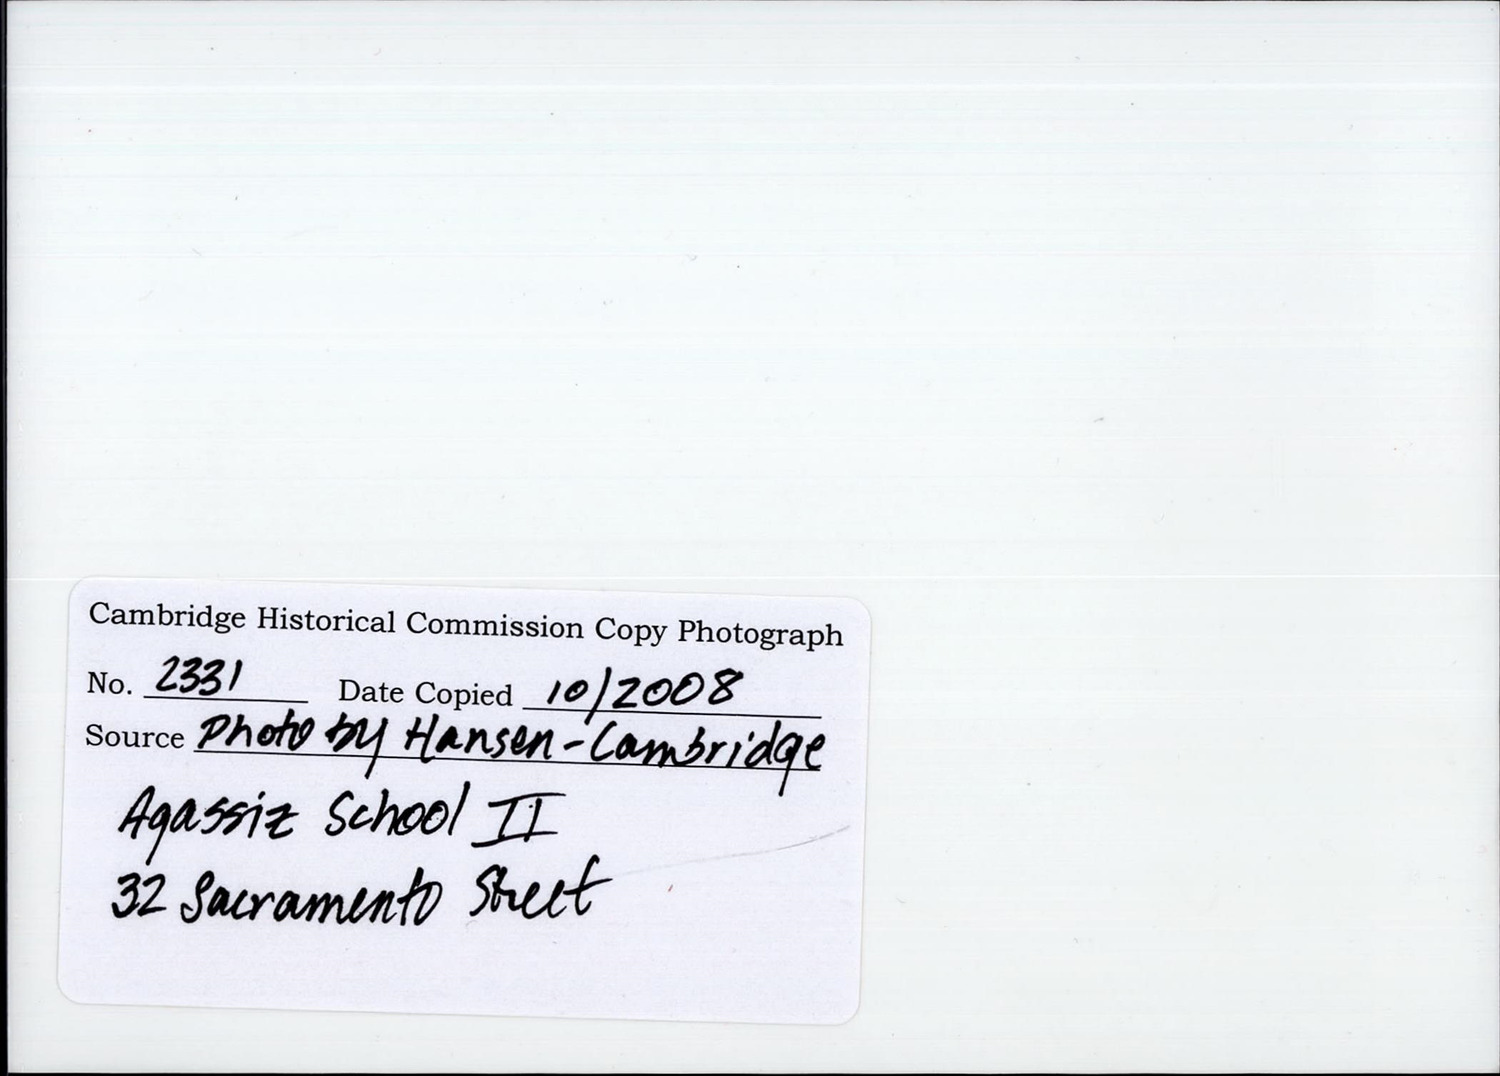 Cambridge Historical Commission Copy Photograph
No. 2331 Date Copied 10/2008
Source Photo by Hansen-Cambridge
Agassiz School II
32 Sacramento Street